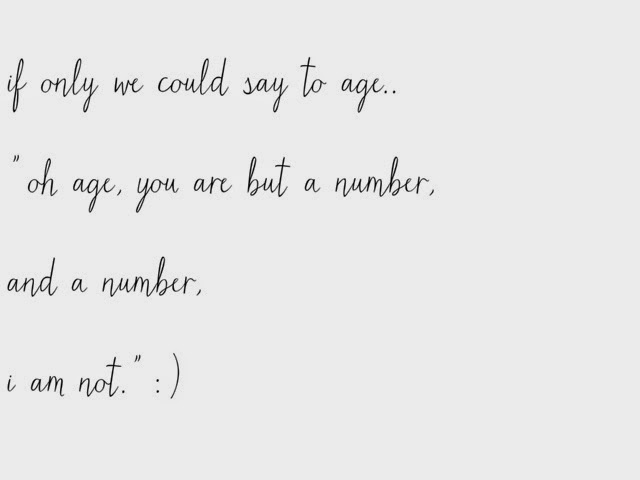 if only we could say to age..
"oh age, you are but a number,
and a number,
i am not." :)